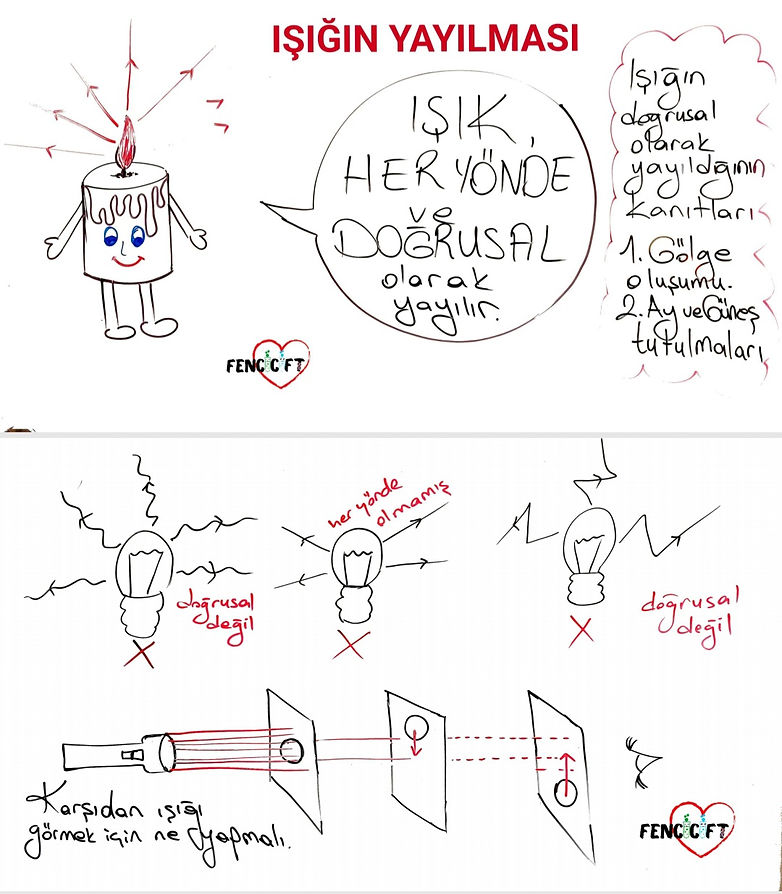 IŞIĞIN YAYILMASI
IŞIK,
HER YÖNDE
ve
DOĞRUSAL
olarak
yayılır.
Işığın
doğrusal
olarak
yayıldığının
kanıtları
1. Gölge
oluşumu.
2. Ay ve Güneş
tutulmaları
FENCİÇİFT
her yönde
olmamış
doğrusal
değil
doğrusal
değil
Karşıdan ışığı
görmek için ne yapmalı.
FENCİÇİFT